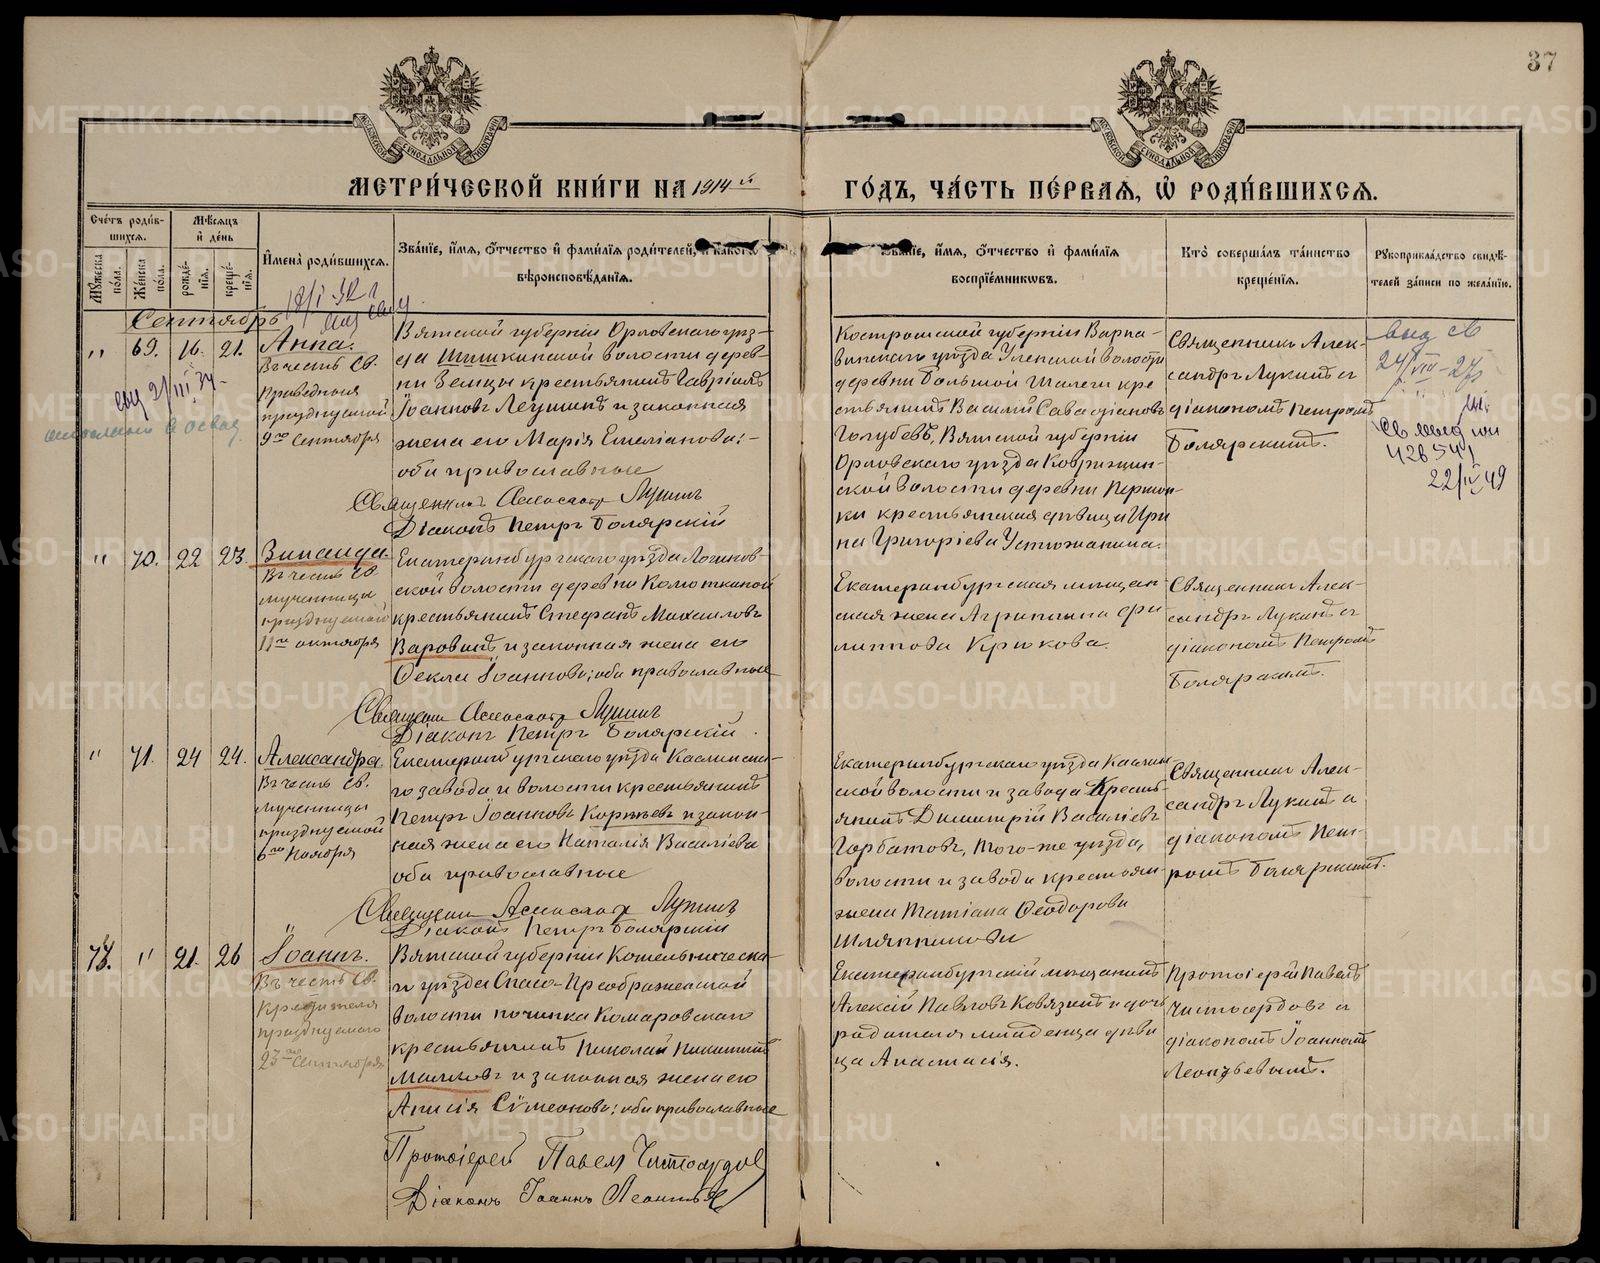 37
МОСКОВСКОЙ СѴНОДАЛЬНОЙ ТИПОГРАФІИ
МОСКОВСКОЙ СѴНОДАЛЬНОЙ ТИПОГРАФІИ
МЕТРИ́ЧЕСКОЙ КНИ́ГИ НА 1914й
ГО́ДЪ, ЧА́СТЬ ПЕ́РВАЯ, Ѡ РОДИ́ВШИХСЯ.
Сче́тъ роди́в-
шихся.
Му́жеска по́ла.
Же́нска по́ла.
Мѣ́сяцъ
и де́нь
рожде́нія.
креще́нія.
И҆мена̀ роди́вшихся.
Зва́ніе, и҆́мя, ѻ҆́тчество и҆ фами́лія роди́телей, и҆ како́гѡ
вѣроисповѣ́данія.
Зва́ніе, и҆́мя, ѻ҆́тчество и҆ фами́лія
воспріе́мниковъ.
Кто̀ соверша́лъ та́инство
креще́нія.
Рꙋкоприкла́дство свидѣ́-
телей за́писи по жела́нію.
Сентябрь
" 69. 16. 21. Анна.
Въ честь Св.
Праведныя
празднуемой
9го Сентября
Вятской губерніи Орловскаго уѣз-
да Шишкинской волости дерев-
ни Земцы крестьянинъ Гавріилъ
Іоанновъ Леушинъ и законная
жена его Марія Емеліанова;-
оба православные
Священникъ Александръ Лукинъ
Діаконъ Петръ Боляр­скій
Костромской губерніи Варна-
винскаго уѣзда Уренской волости
деревни Большой Шалеги кре
стьянинъ Василій Савватіановъ
Голубевъ, Вятской губерніи
Орловскаго уѣзда Ковригин-
ской волости деревни
ки крестьянская дѣвица Ири
на Григоріева Устюжанина.
Священникъ Алек-
сандръ Лукинъ съ
діакономъ Петромъ
Болярскимъ.
выд св
24/VIII-27
Св выд
426541
22/IV 49
" 70. 22 23. Зинаида
Въ честь Св.
мученицы
празднуемой
11го октября
Екатеринбургскаго уѣзда Логинов-
ской волости деревни Колюткиной
крестьянинъ Стефанъ Михаиловъ
Варовинъ и законная жена его
Ѳекла Іоаннова; оба православные
Священ. Александръ Лукинъ
Діаконъ Петръ Болярскій.
Екатеринбургская мѣщан-
ская жена Агрипина Фи
липпова Крюкова.
Священникъ Алек-
сандръ Лукинъ съ
діакономъ Петромъ
Болярскимъ.
" 71. 24 24. Александра
Въ честь Св.
мученицы
празднуемой
6го Ноября
Екатеринбургскаго уѣзда Каслинска-
го завода и волости крестьянинъ
Петръ Іоанновъ Корнѣевъ и закон-
ная жена его Наталія Василіева
оба православные
Священ. Александръ Лукинъ
Діаконъ Петръ Болярскій
Екатеринбургскаго уѣзда Каслин
ской волости и завода Кресть-
янинъ Димитрій Василіевъ
Горбатовъ, того-же уѣзда,
волости и завода крестьян.
жена Татіана Ѳеодорова
Шляпникова
Священникъ Алек-
сандръ Лукинъ съ
діакономъ Пет-
ромъ Болярскимъ.
78. " 21. 26 Іоаннъ.
Въ честь Св.
Крестителя
празднуемаго
23го Сентября
Вятской губерніи Котельническа-
го уѣзда Спасо-Преображенской
волости починка Комаровскаго
крестьянинъ Николай Никитинъ
Малковъ и законная жена его
Анисія Сѵмеонова; оба православные
Протоіерей Павелъ Чистосердовъ
Діаконъ Іоаннъ Леонтьевъ
Екатеринбургскій мѣщанинъ
Алексій Павловъ Ковязинъ и дочь
родителя младенца дѣви
ца Анастасія.
Протоіерей Павелъ
Чистосердовъ съ
діакономъ Іоанномъ
Леонтьевымъ.
METRIKI.GASO-URAL.RU